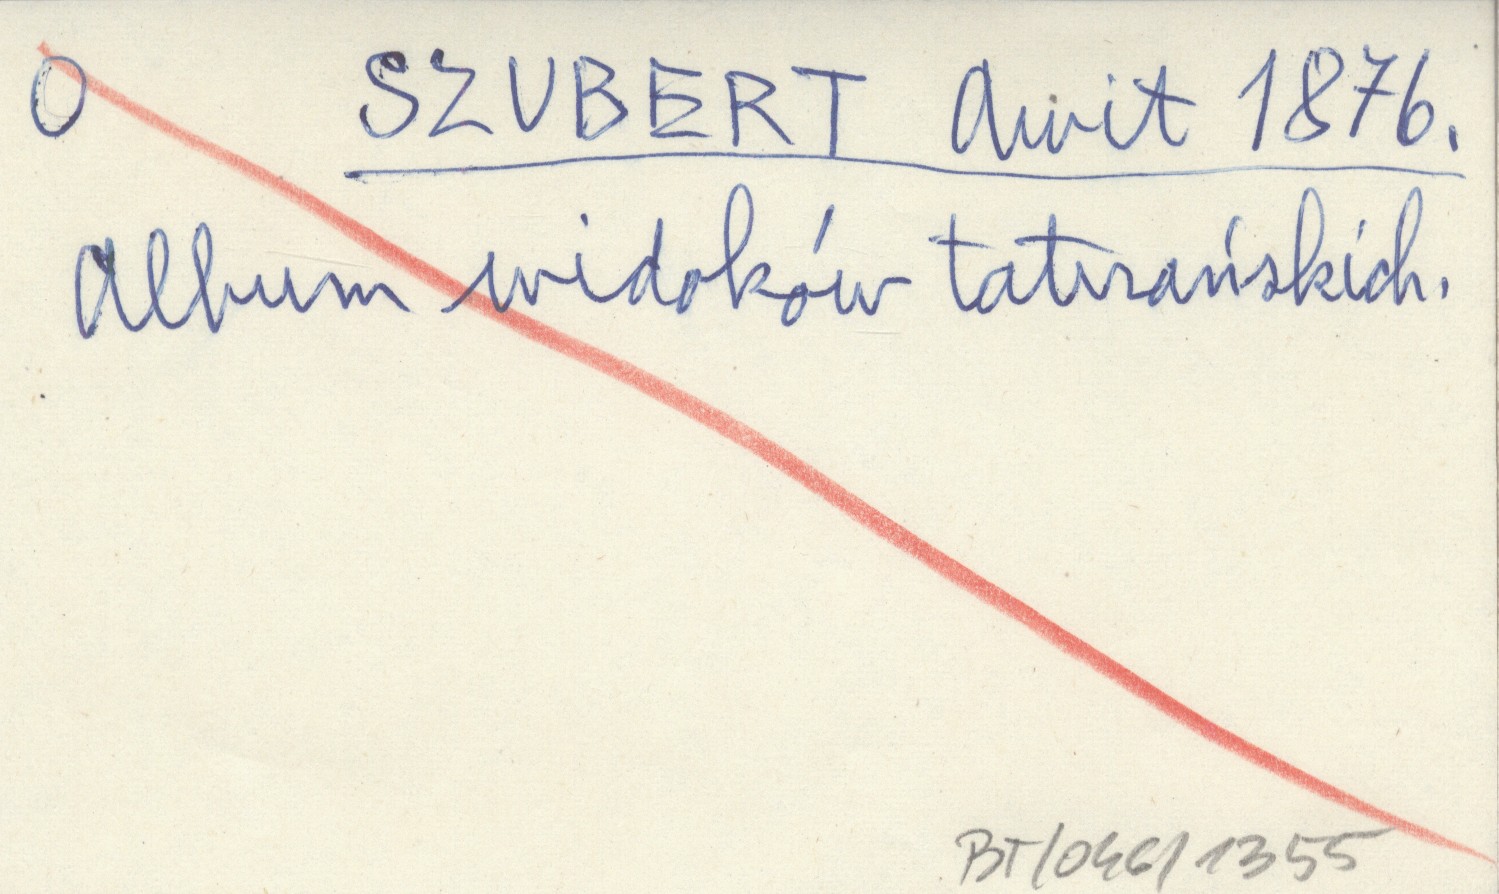 O SZUBERT Awit 1876.
Album widoków tatrzańskich.
BT/046/1355